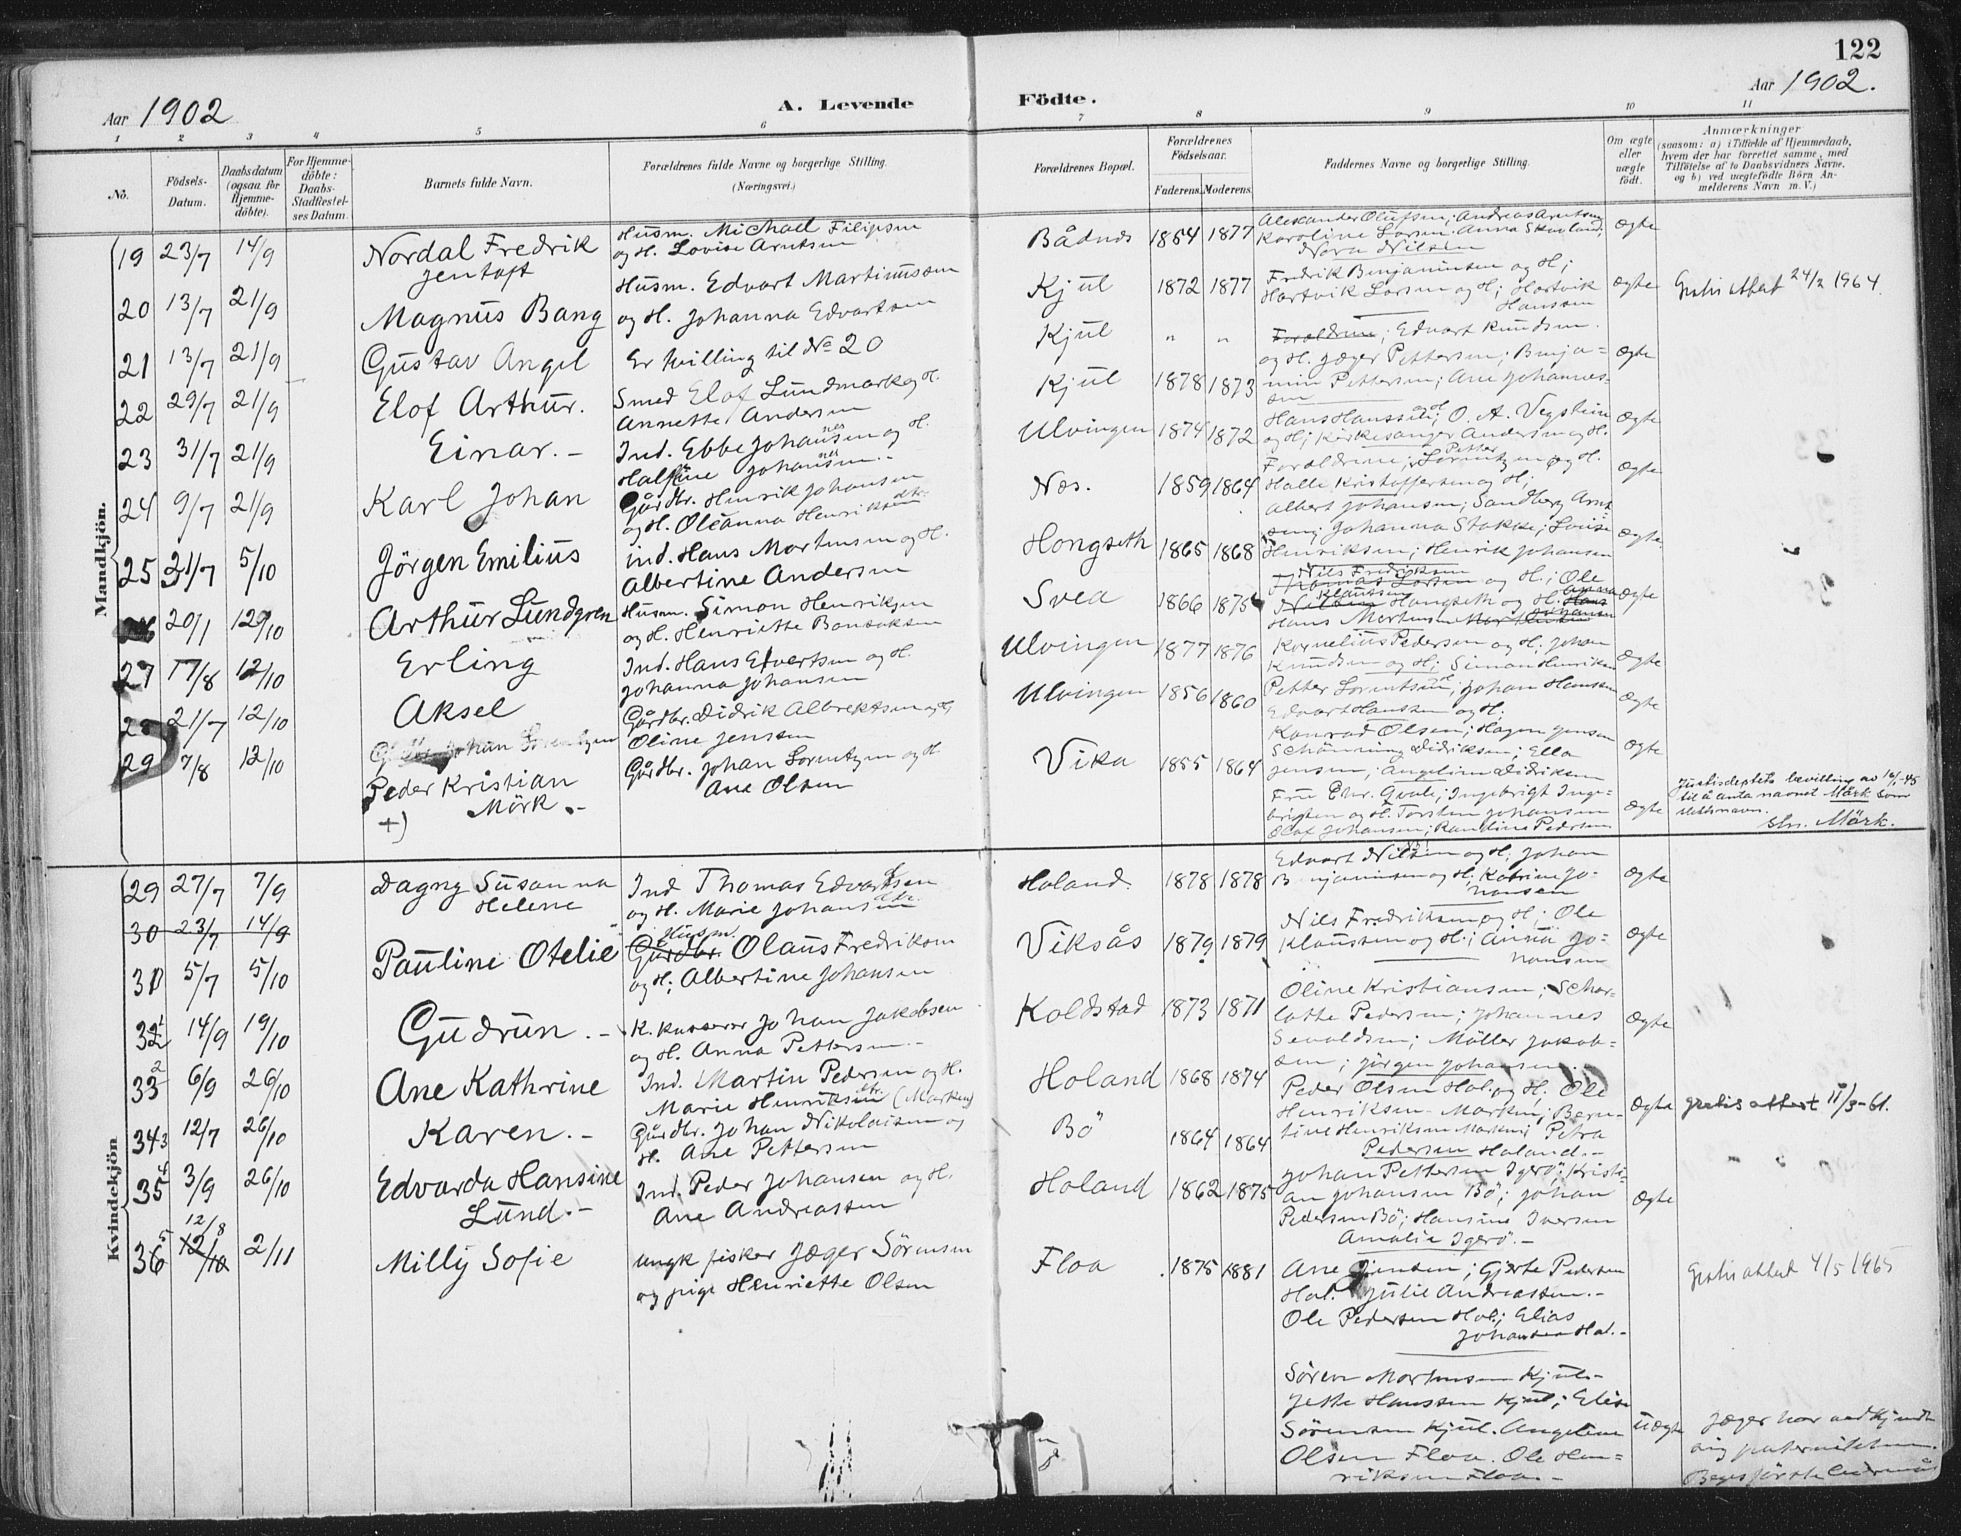 122
Aar 1902
A. Levende
Födte.
Aar 1902.
1 2 3 4 5 6 7 8 9 10 11
No.
Födsels-Datum.
Daabsdatum (ogsaa for Hjemme-döbte).
For Hjemme-döbte: Daabs-Stadfæstel-ses Datum.
Barnets fulde Navn.
Forældrenes fulde Navne og borgerlige Stilling.
(Næringsvei.)
Forældrenes Bopæl.
Forældrenes Födselsaar.
Faderens. Moderens.
Faddernes Navne og borgerlige Stilling.
Om ægte eller uægte födt.
Anmærkninger
(saasom: a) i Tilfælde af Hjemmedaab, hvem der har forrettet samme, med Tilföielse af to Daabsvidners Navne, og b) ved uægtefödte Börn Anmelderens Navn m. V.)
Mandkjön.
19 23/7 14/9 Nordal Fredrik Jentoft
Husm. Michael Filipsen og H. Lovise Arntsen
1854 1877
Alexander Olufsen; Andreas Arntsen
Karoline Larsen
Nora Nilsen
Ægte
20 13/7 21/9 Magnus Bang
Husm. Edvart Martinussen og H. Johanna Edvartsen
Kjul 1872 1877
Fredrik Benjaminsen og H;
Hartvik Larsen og H; Hartvik Hanssen
Ægte
Gratis attest 24/2 1964.
21 13/7 21/9 Gustav Angel
Er tvilling til No 20
Kjul " "
Forældrene; Edvart Knudsen
og H. Jæger Pettersen; Benja=
Ægte
22 29/7 21/9 Elof Arthur.
Smed Elof Lundmark og H. Annette Andersen
Kjul 1878 1873
min Pettersen; Ane Johannes-
sen
23 31/7 21/9 Einar.-
Ind. Ebbe Johansen og H.
Johansen.-
Ulvingen 1874 1872
Hans Hanssen
og H; Kirkesanger Andersen og H.
Ægte
24 9/7 21/9 Karl Johan
Gårdbr. Henrik Johansen
og H. Oleanna Henriksen
Næs. 1859 1864
Forældrene; Petter Lorentzen og H.
Halle Kristoffersen og H;
Albert Johansen; Sandberg Arnt
Ægte
25 21/7 5/10 Jörgen Emilius
Ind. Hans Mortensen og H.
Albertine Andersen
Hongseth 1865 1868
sen; Johanna Stokke; Lovise
Henriksen; Henrik Johansen
Ægte
20/1 12/10 Arthur Lundgren
Husm. Simon Henriksen
og H. Henriette
Svea 1866 1875
Nils Fredriksen
Thomas Larsen og H.; Ole
Klaussen
Hongseth og H.
Hans Mortensen
Ægte
27 17/8 12/10 Erling
Ind. Hans Edvertsen og H.
Johanna Johansen
Ulvingen 1877 1876
Kornelius Pedersen og H; Johan
Knudsen og H; Simon Henriksen
Ægte
28 21/7 12/10 Aksel
Gårdbr. Didrik Albrektsen og H
Oline Jenssen
Ulvingen 1856 1860
Petter Lorentsen; Johan Hanssen
Edvart Hanssen og H.
Konrad Olsen; Hagen Jensen
Schönning Didriksen; Ella
Jensen; Angelina Didriksen
Ægte
29 7/8 12/10
Peder Kristian
Mörk.-
+)
Gårdbr. Johan Lorentzen og H
Ane Olsen
Vika 1855 1864
Fru Chr. Qvale; Ingebrigt Inge-
brigtsen og H. Torsten Johansen
Olaf Johansen; Randine Pedersen
Ægte
Justisdeptets bevilling av 16/1-45
til å anta navnet Mörk som
slektsnavn.
Mörk.
Kvindekjön
29 27/7 7/9 Dagny Susanna Helene
Ind Thomas Edvartsen
og H. Marie Johansen
Holand. 1878 1878
Edvart Nilsen og H; Johan
Benjaminsen og H; Katrine Jo-
hansen
Ægte
30 23/7 14/9
31 5/7 5/10 Pauline Otelie
Husm.
Gårdbr. Olaus Fredriksen
og H; Albertine Johansen
Viksås 1879 1879
Nils Fredriksen og H; Ole
Klaussen og H.; Anna Jo-
hansen
Ægte
32 14/9 19/10 Gudrun.-
K. kasserer Johan Jakobsen
og H. Anna Pettersen.-
Koldstad 1873 1871
Oline Kristiansen; Schar-
lotte Pedersen; Johannes
Sevaldsen; Möller Jakob-
sen; Jörgen Johansen.
Ægte
33 6/9 26/10 Ane Kathrine
Ind. Martin Pedersen og H.
Marie Henriksen (Marken)
Holand 1868 1874
Peder Olsen Hol. og H. Ole
Henriksen Marken; Bern-
tine Henriksen Marken; Petra
Pedersen Holand.-
Ægte
gratis attest 11/3-61.
34 12/7 26/10 Karen.-
Gårdbr. Johan Nikolaisen og
H. Ane Pettersen
Bö 1864 1864
Johan Pettersen Igerö; Kristi-
an Johansen Bö; Johan
Pedersen Bö; Hansine Iversen
Amalie Igerö.-
Ægte
35 3/9 26/10 Edvarda Hansine
Lund.-
Ind. Peder Johansen og H.
Ane Andreassen
Holand 1862 1875
Ane Jensen; Gjerte Pedersen
Hol. Julie Andreassen.-
Ole Pedersen Hol; Elias
Johansen Hol.-
36 12/8 12/10 2/11 Milly Sofie
ungk fisker Jæger Sörensen
og pige Henriette Olsen
Floa 1875 1881
Sören Mortensen Kjul-
Jette Hanssen Kjul; Elise
Sörensen Kjul. Angeline
Olsen Floa. Ole Hen=
riksen Floa.-
Uægte
Gratis attest 4/5 1965
Jæger har vedkjendt
sig paterniteten.
Begges förste